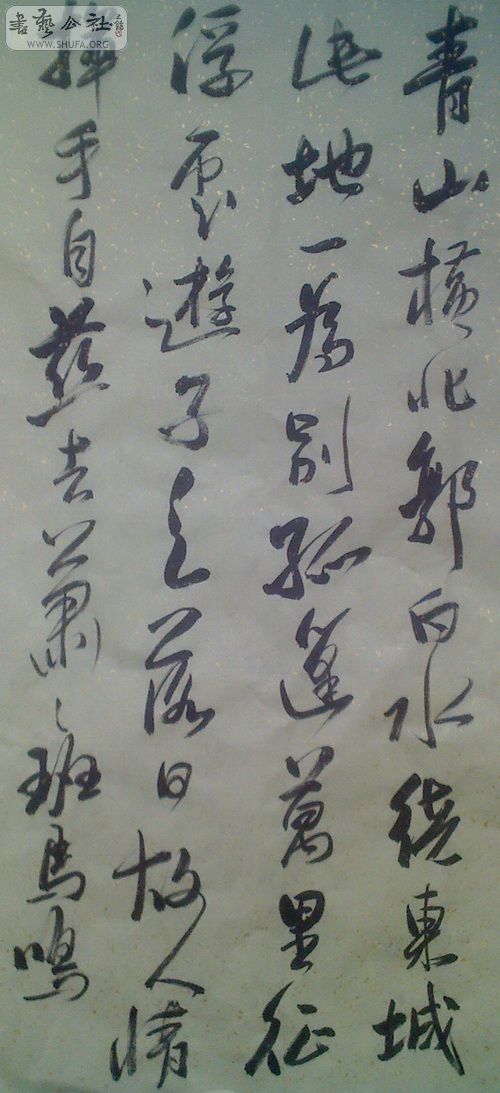 青山橫北郭白水繞東城
此地一為別孤篷萬里征
浮雲遊子意落日故人情
揮手自茲去蕭々班馬鳴
書藝公社
WWW.SHUFA.ORG